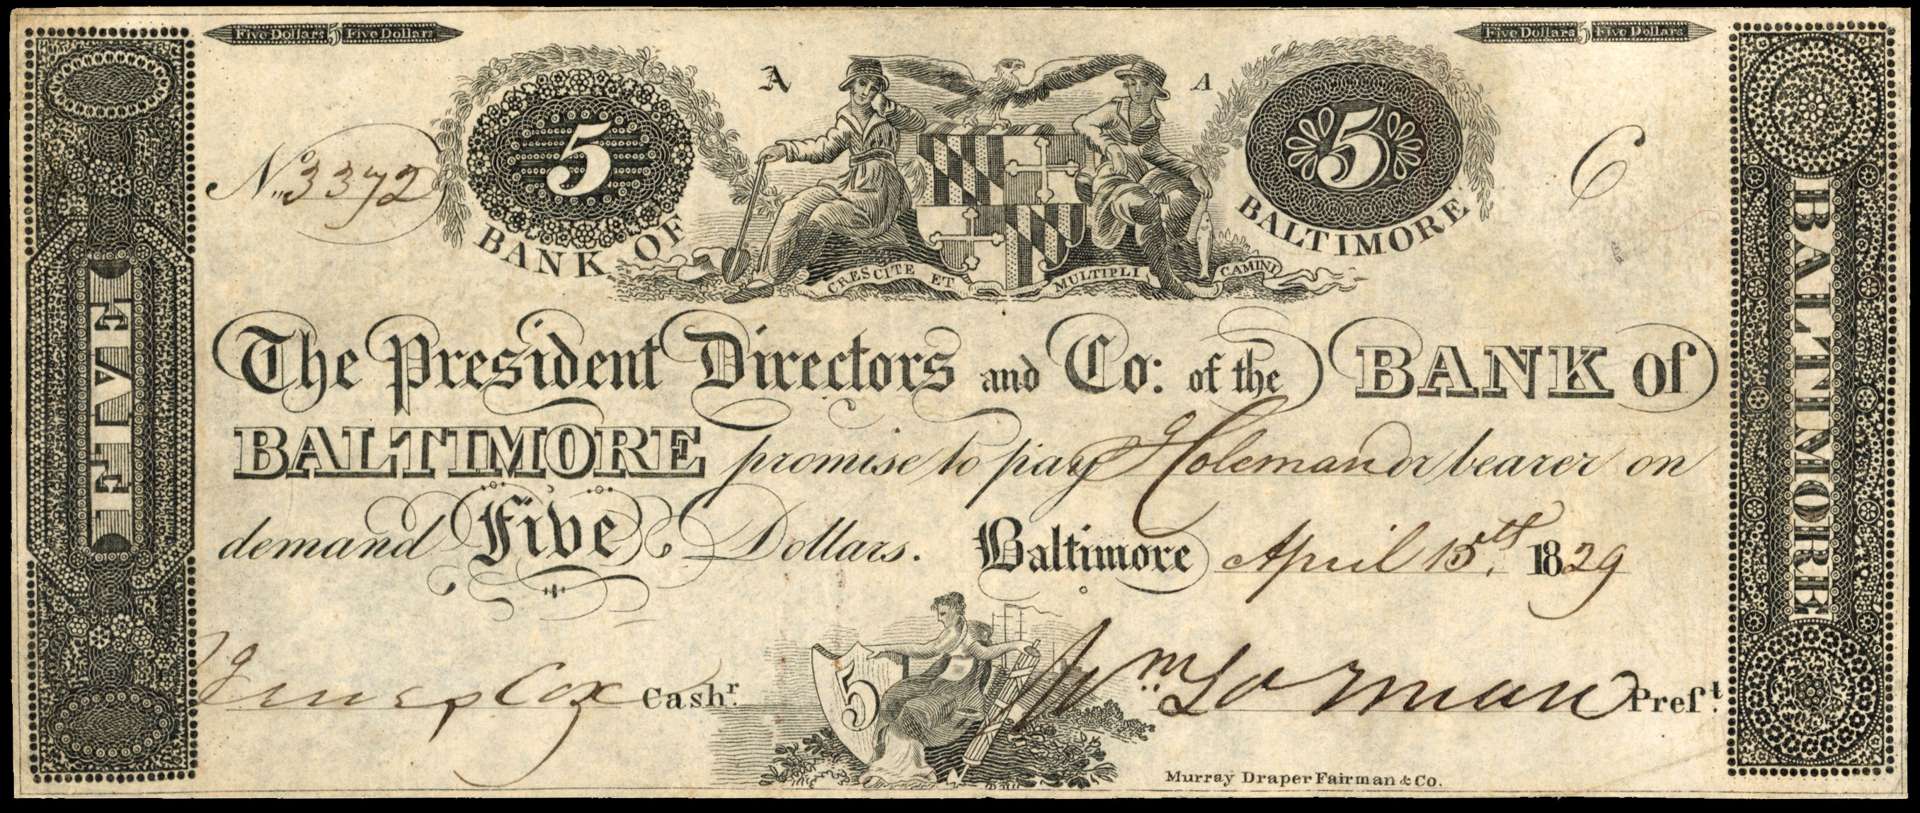 Five Dollars 5 Five Dollars
Five Dollars 5 Five Dollars
A
A
5
5
No. 3372
C
BANK OF
BALTIMORE
CRESCITE ET MULTIPLICAMINI
The President Directors and Co: of the BANK of
BALTIMORE promise to pay J Holeman or bearer on
demand Five Dollars. Baltimore April 15th. 1829
James Cox Cashr.
5
Wm. Lorman Presſt.
Murray Draper Fairman & Co.
FIVE
BALTIMORE